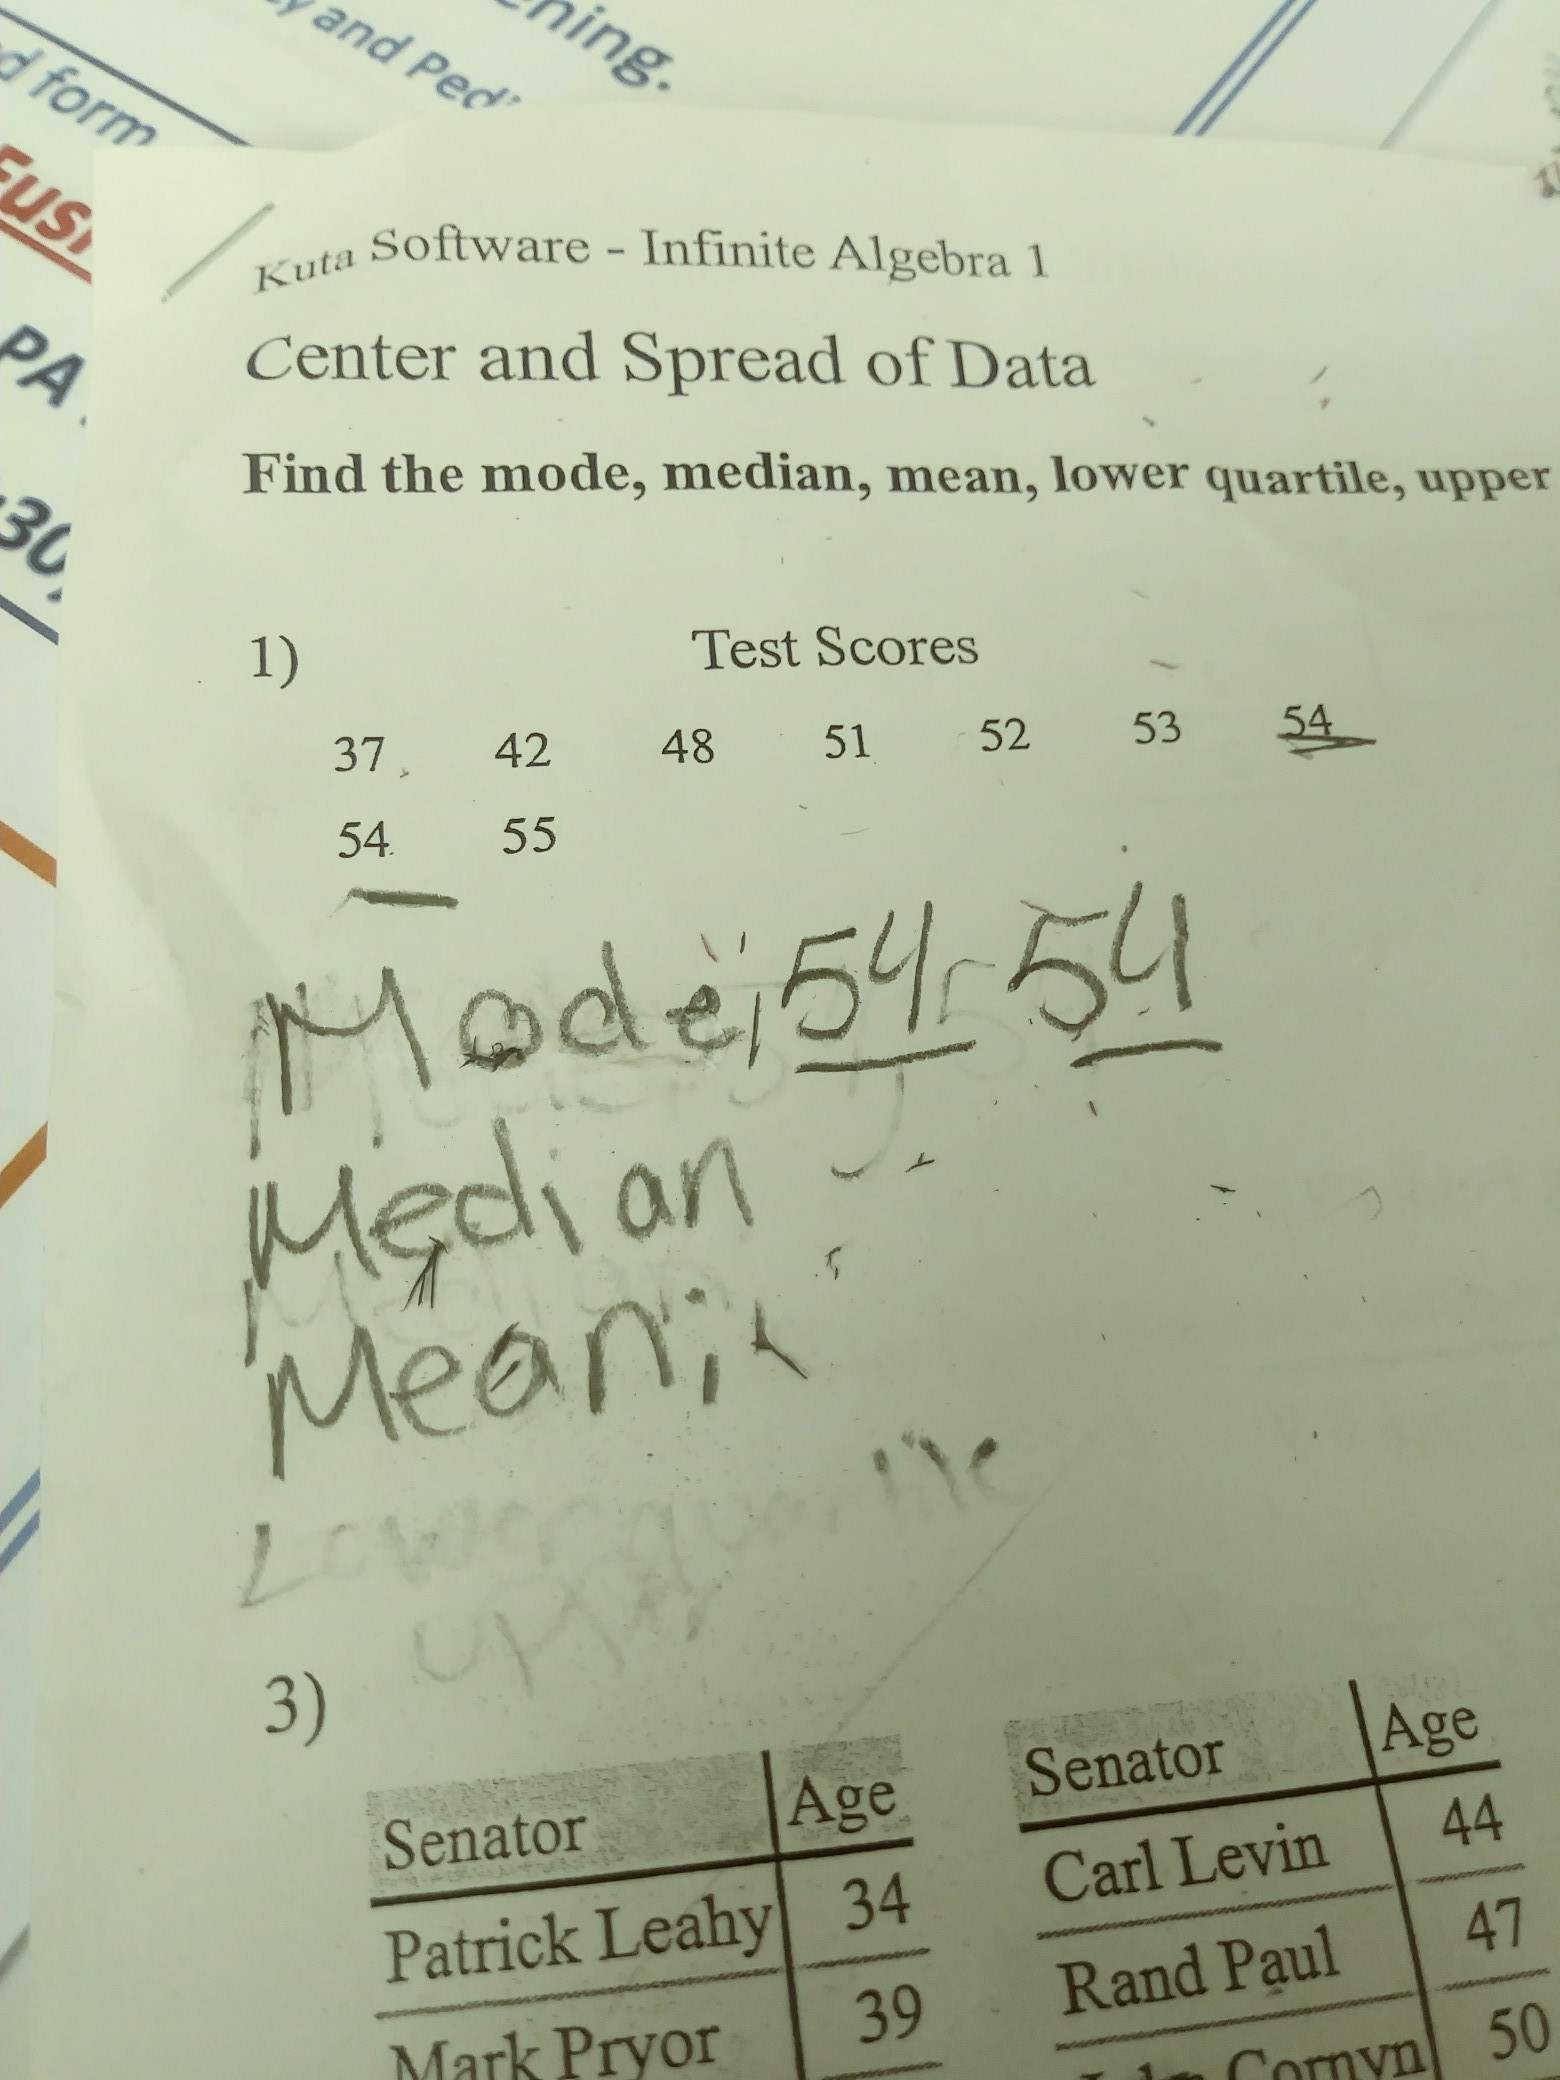 ening.
y and Ped
d form
PA
Kuta Software - Infinite Algebra 1
Center and Spread of Data
Find the mode, median, mean, lower quartile, upper
1)
Test Scores
37 42 48 51 52 53 54
54 55
Mode; 54, 54
Median
Mean;
Lower quartile
3)
Senator Age Senator Age
Patrick Leahy 34 Carl Levin 44
Mark Pryor 39 Rand Paul 47
Cornyn 50